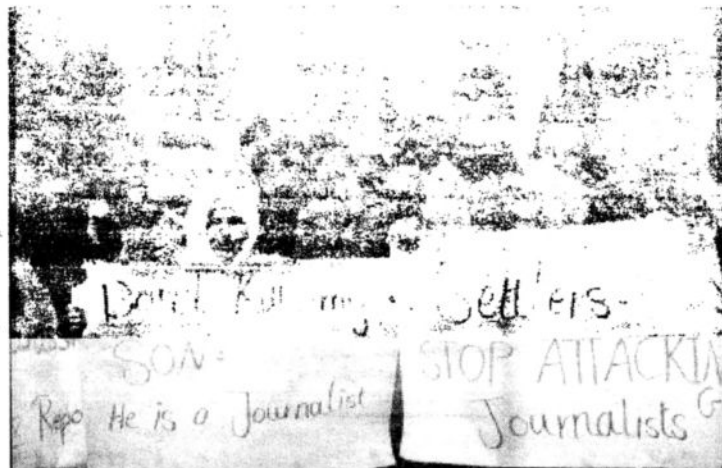 Don't Kill my
SON.
He is a Journalist
Settlers.
STOP ATTACKIN
Journalists
Repo